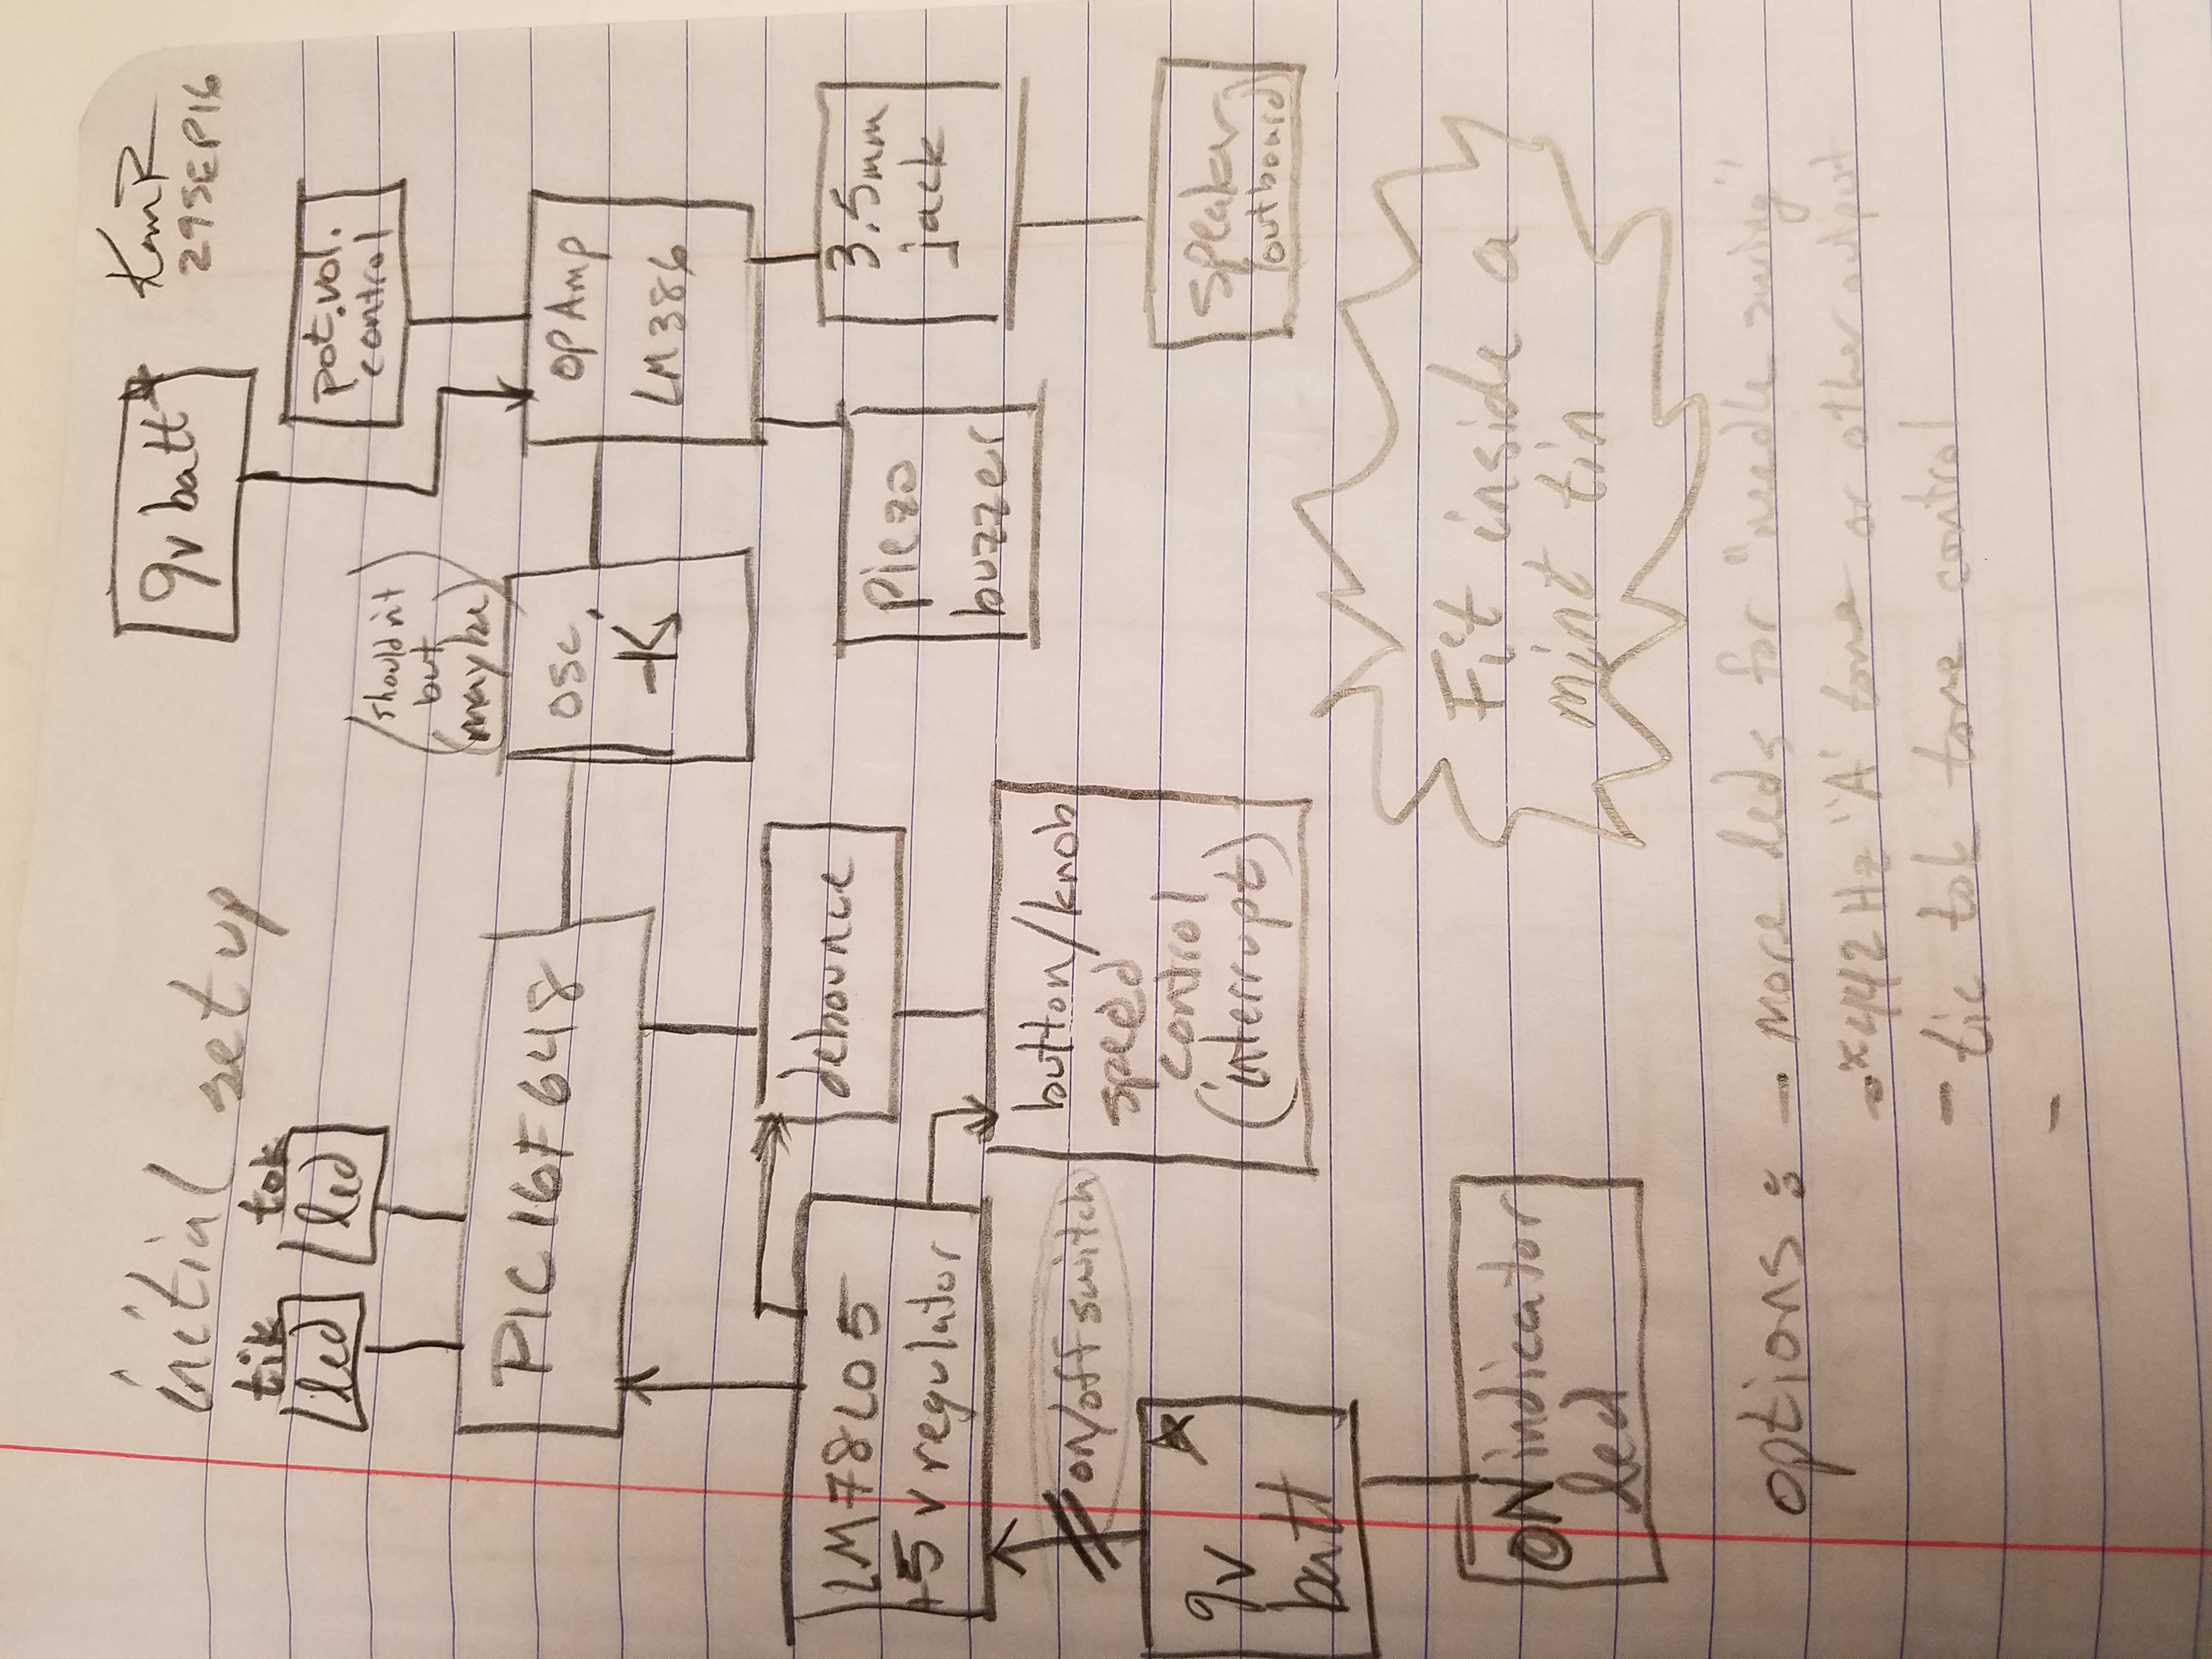 initial setup
9v batt
29SEP16
tik
tok
led
led
pot. vol.
control
(shouldn't
but
maybe)
PIC 16F648
osc.
OPAmp
LM386
LM78L05
+5v regulator
debounce
Piezo
buzzer
3.5mm
jack
on/off switch
button/knob
speed
control
(interrupt)
9v
batt
speaker
(outboard)
ON indicator
led
Fit inside a
mint tin
options: - more leds for "needle swing"
-*442 Hz "A' tone or other output
- tic tok tone control
-